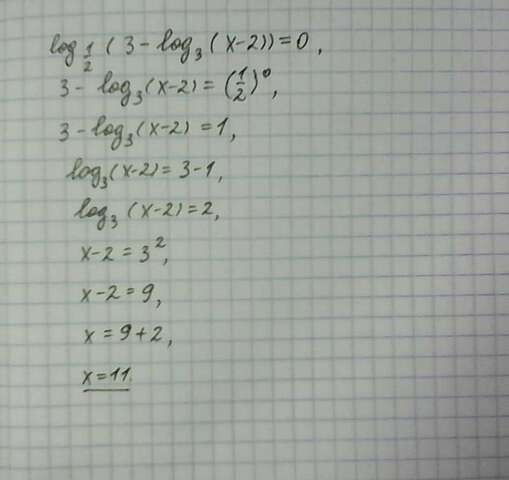 log½ (3 - log₃ (x-2)) = 0,
3 - log₃(x-2) = (½)⁰,
3 - log₃(x-2) = 1,
log₃(x-2) = 3-1,
log₃ (x-2) = 2,
x-2 = 3²,
x-2 = 9,
x = 9+2,
x = 11.